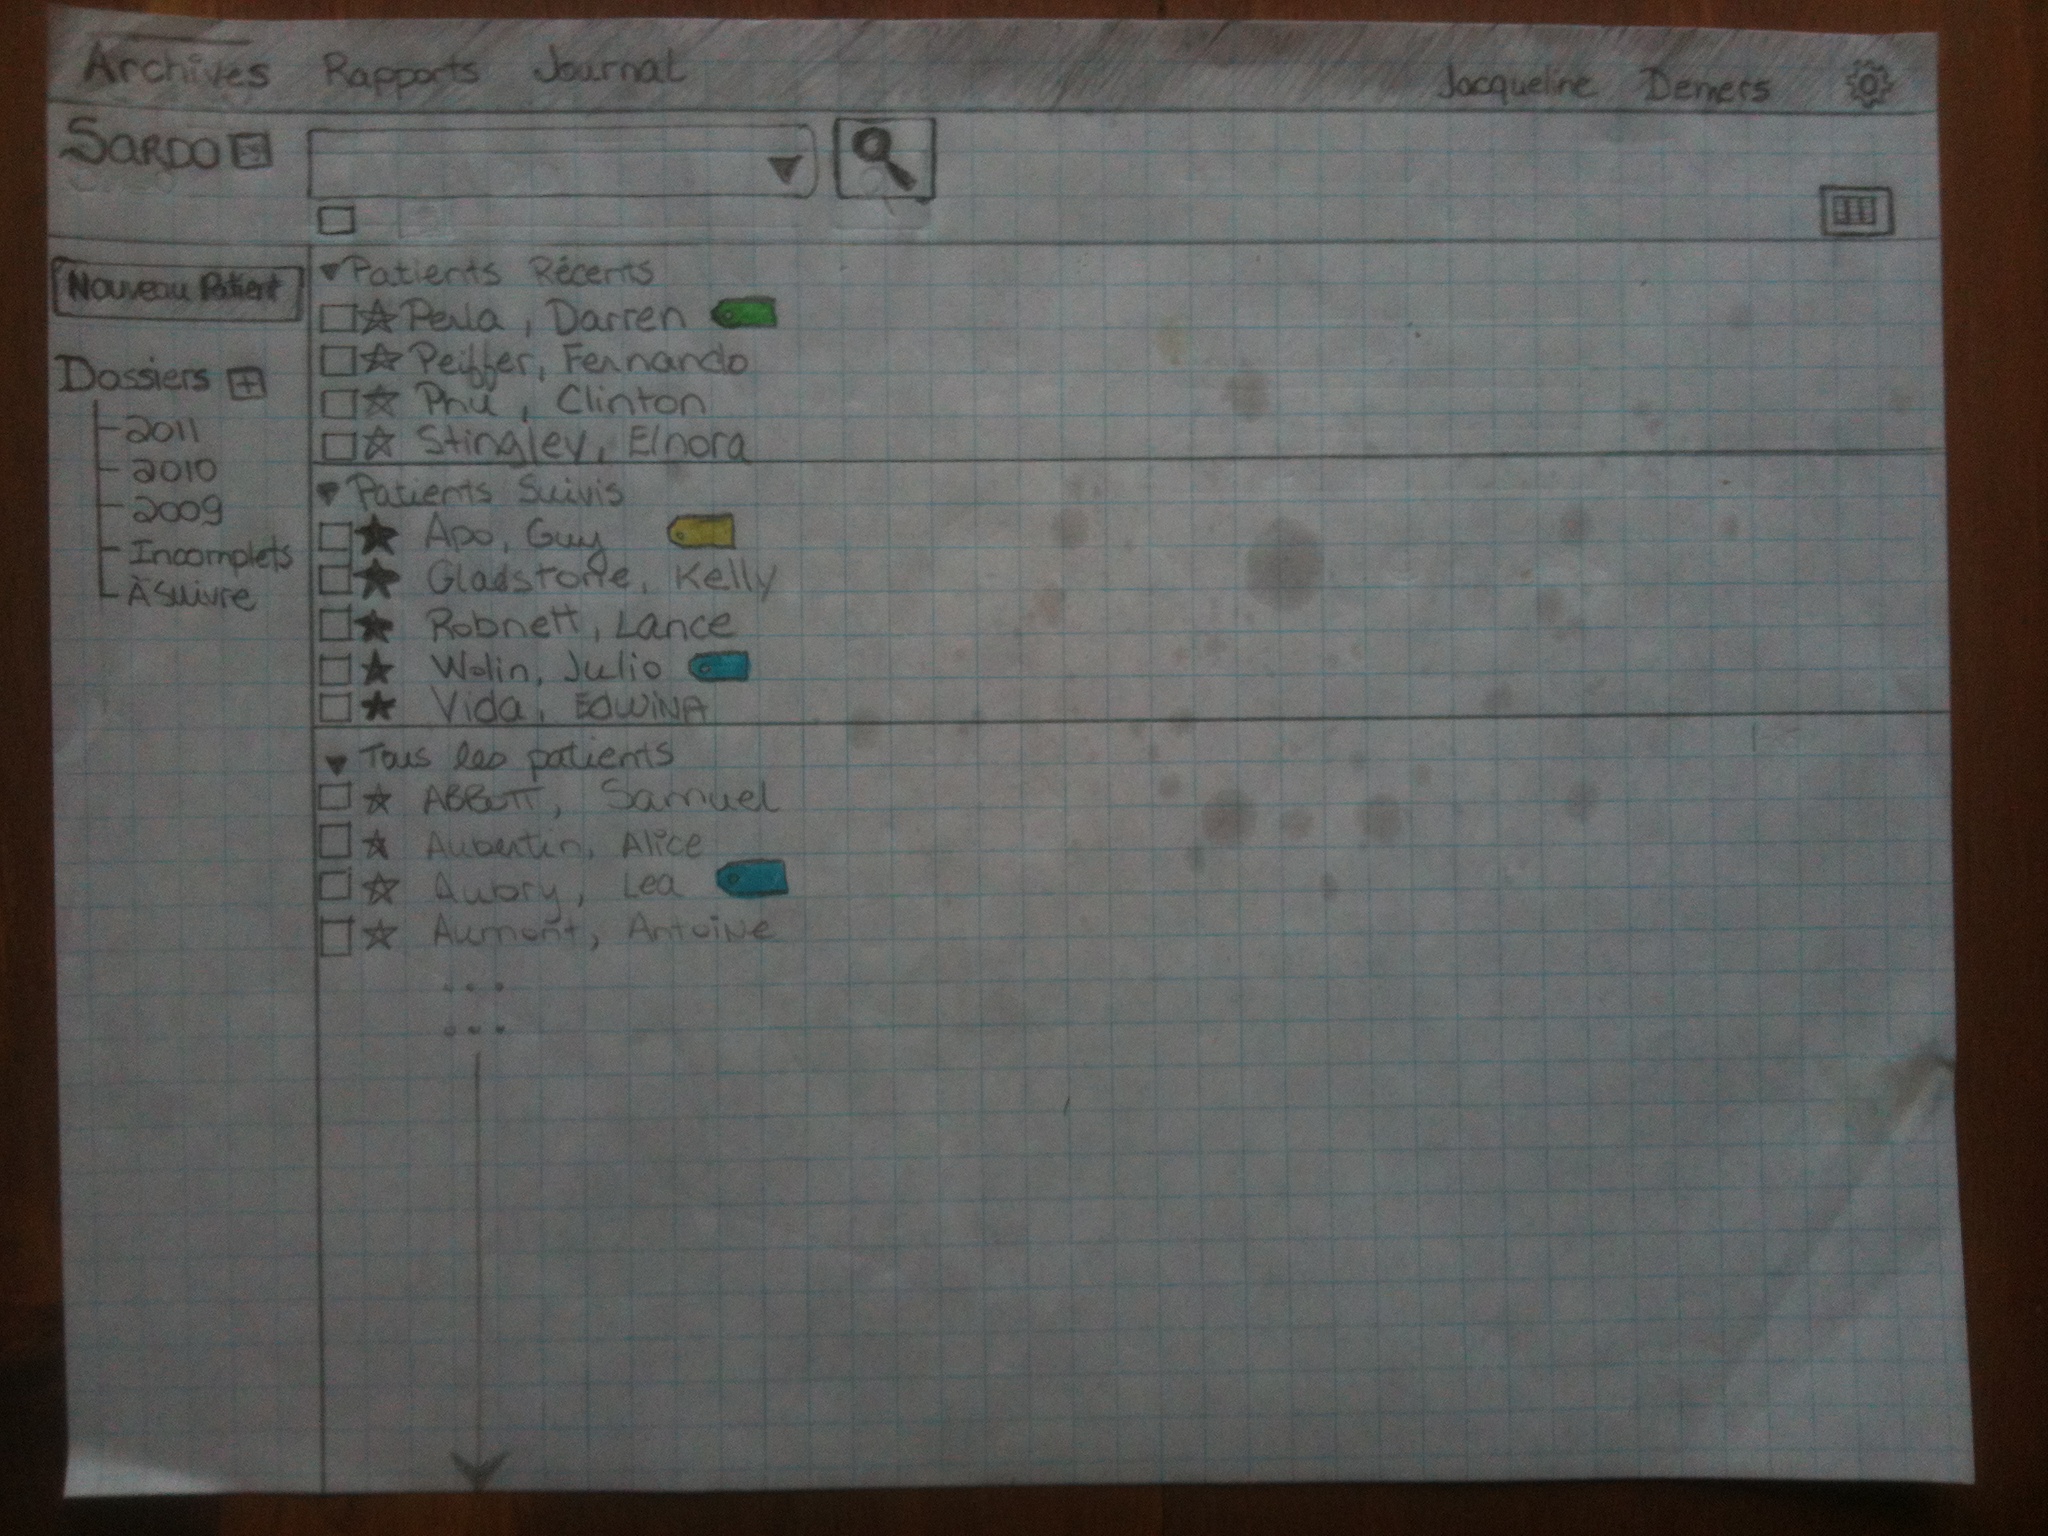 Archives Rapports Journal Jacqueline Demers
SARDO
Nouveau Patient
Dossiers +
2011
2010
2009
Incomplets
À Suivre
Patients Récents
Peila, Darren
Peiffer, Fernando
Phu, Clinton
Stingley, Elnora
Patients Suivis
Apo, Guy
Gladstone, Kelly
Robnett, Lance
Wolin, Julio
Vida, EDWINA
Tous les patients
ABBOTT, Samuel
Aubertin, Alice
Aubry, Lea
Aumont, Antoine
...
...